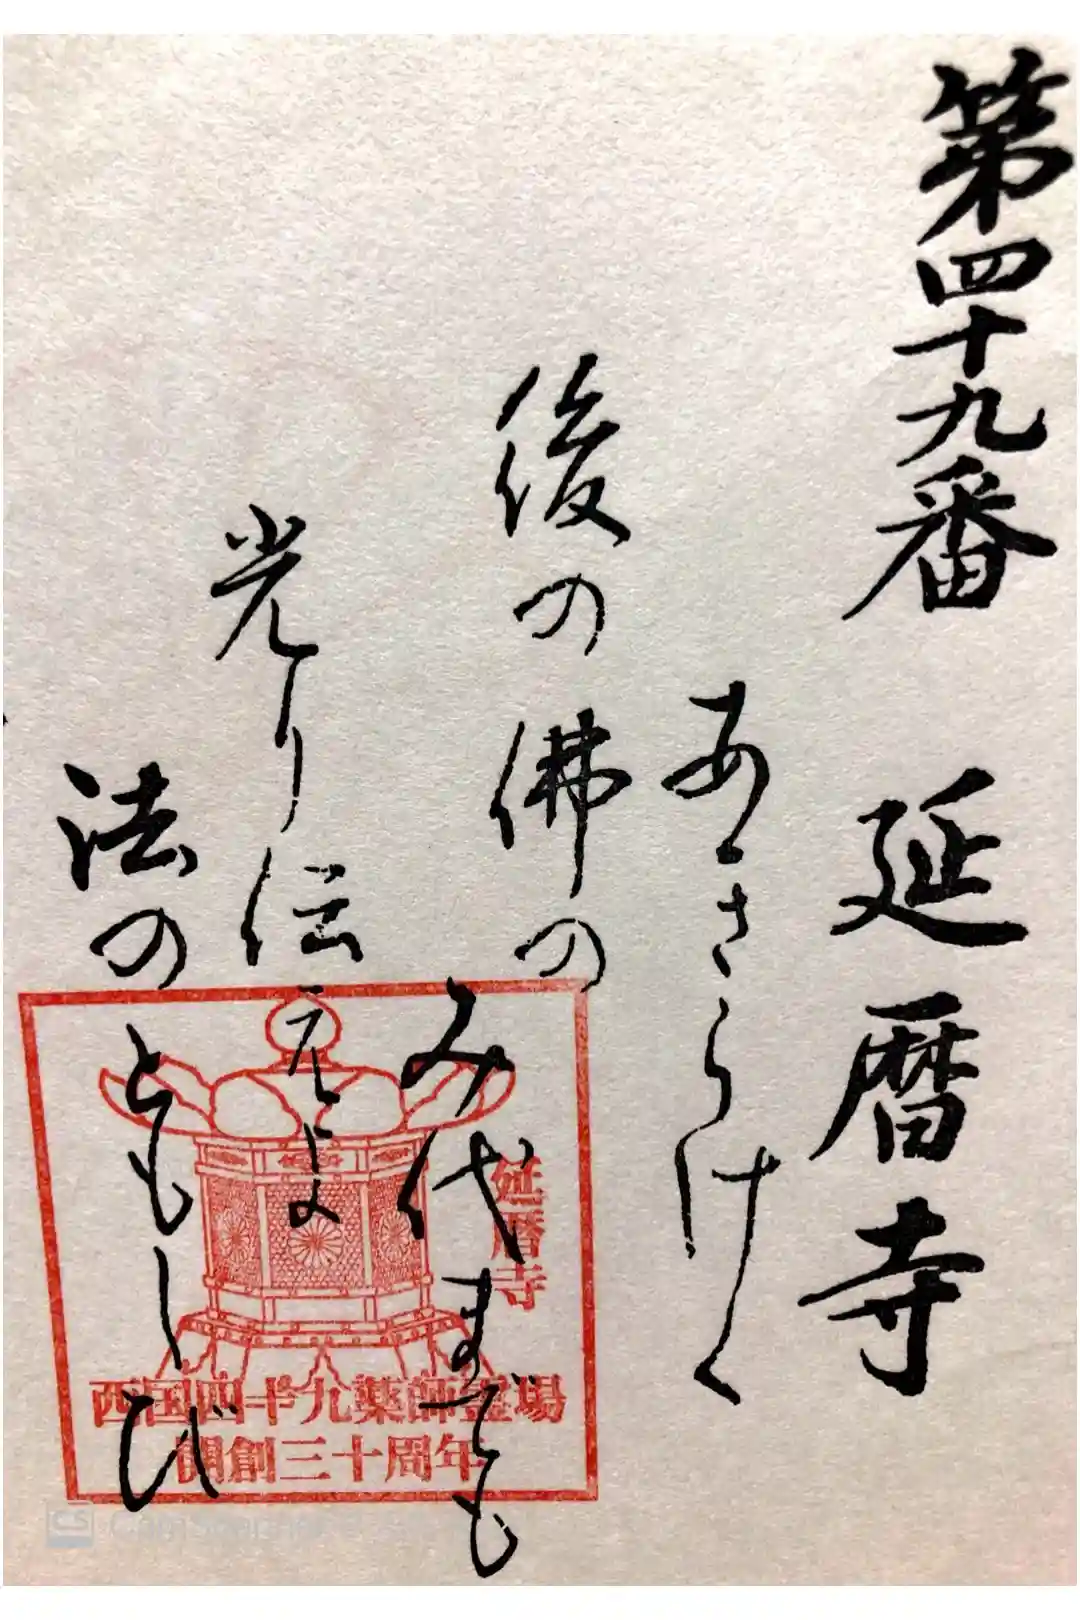 第四十九番 延暦寺
あきらけく
後の佛の
み代までも
光り伝えよ
法のともしび
延暦寺
西国四十九薬師霊場
開創三十周年
CS CamScanner